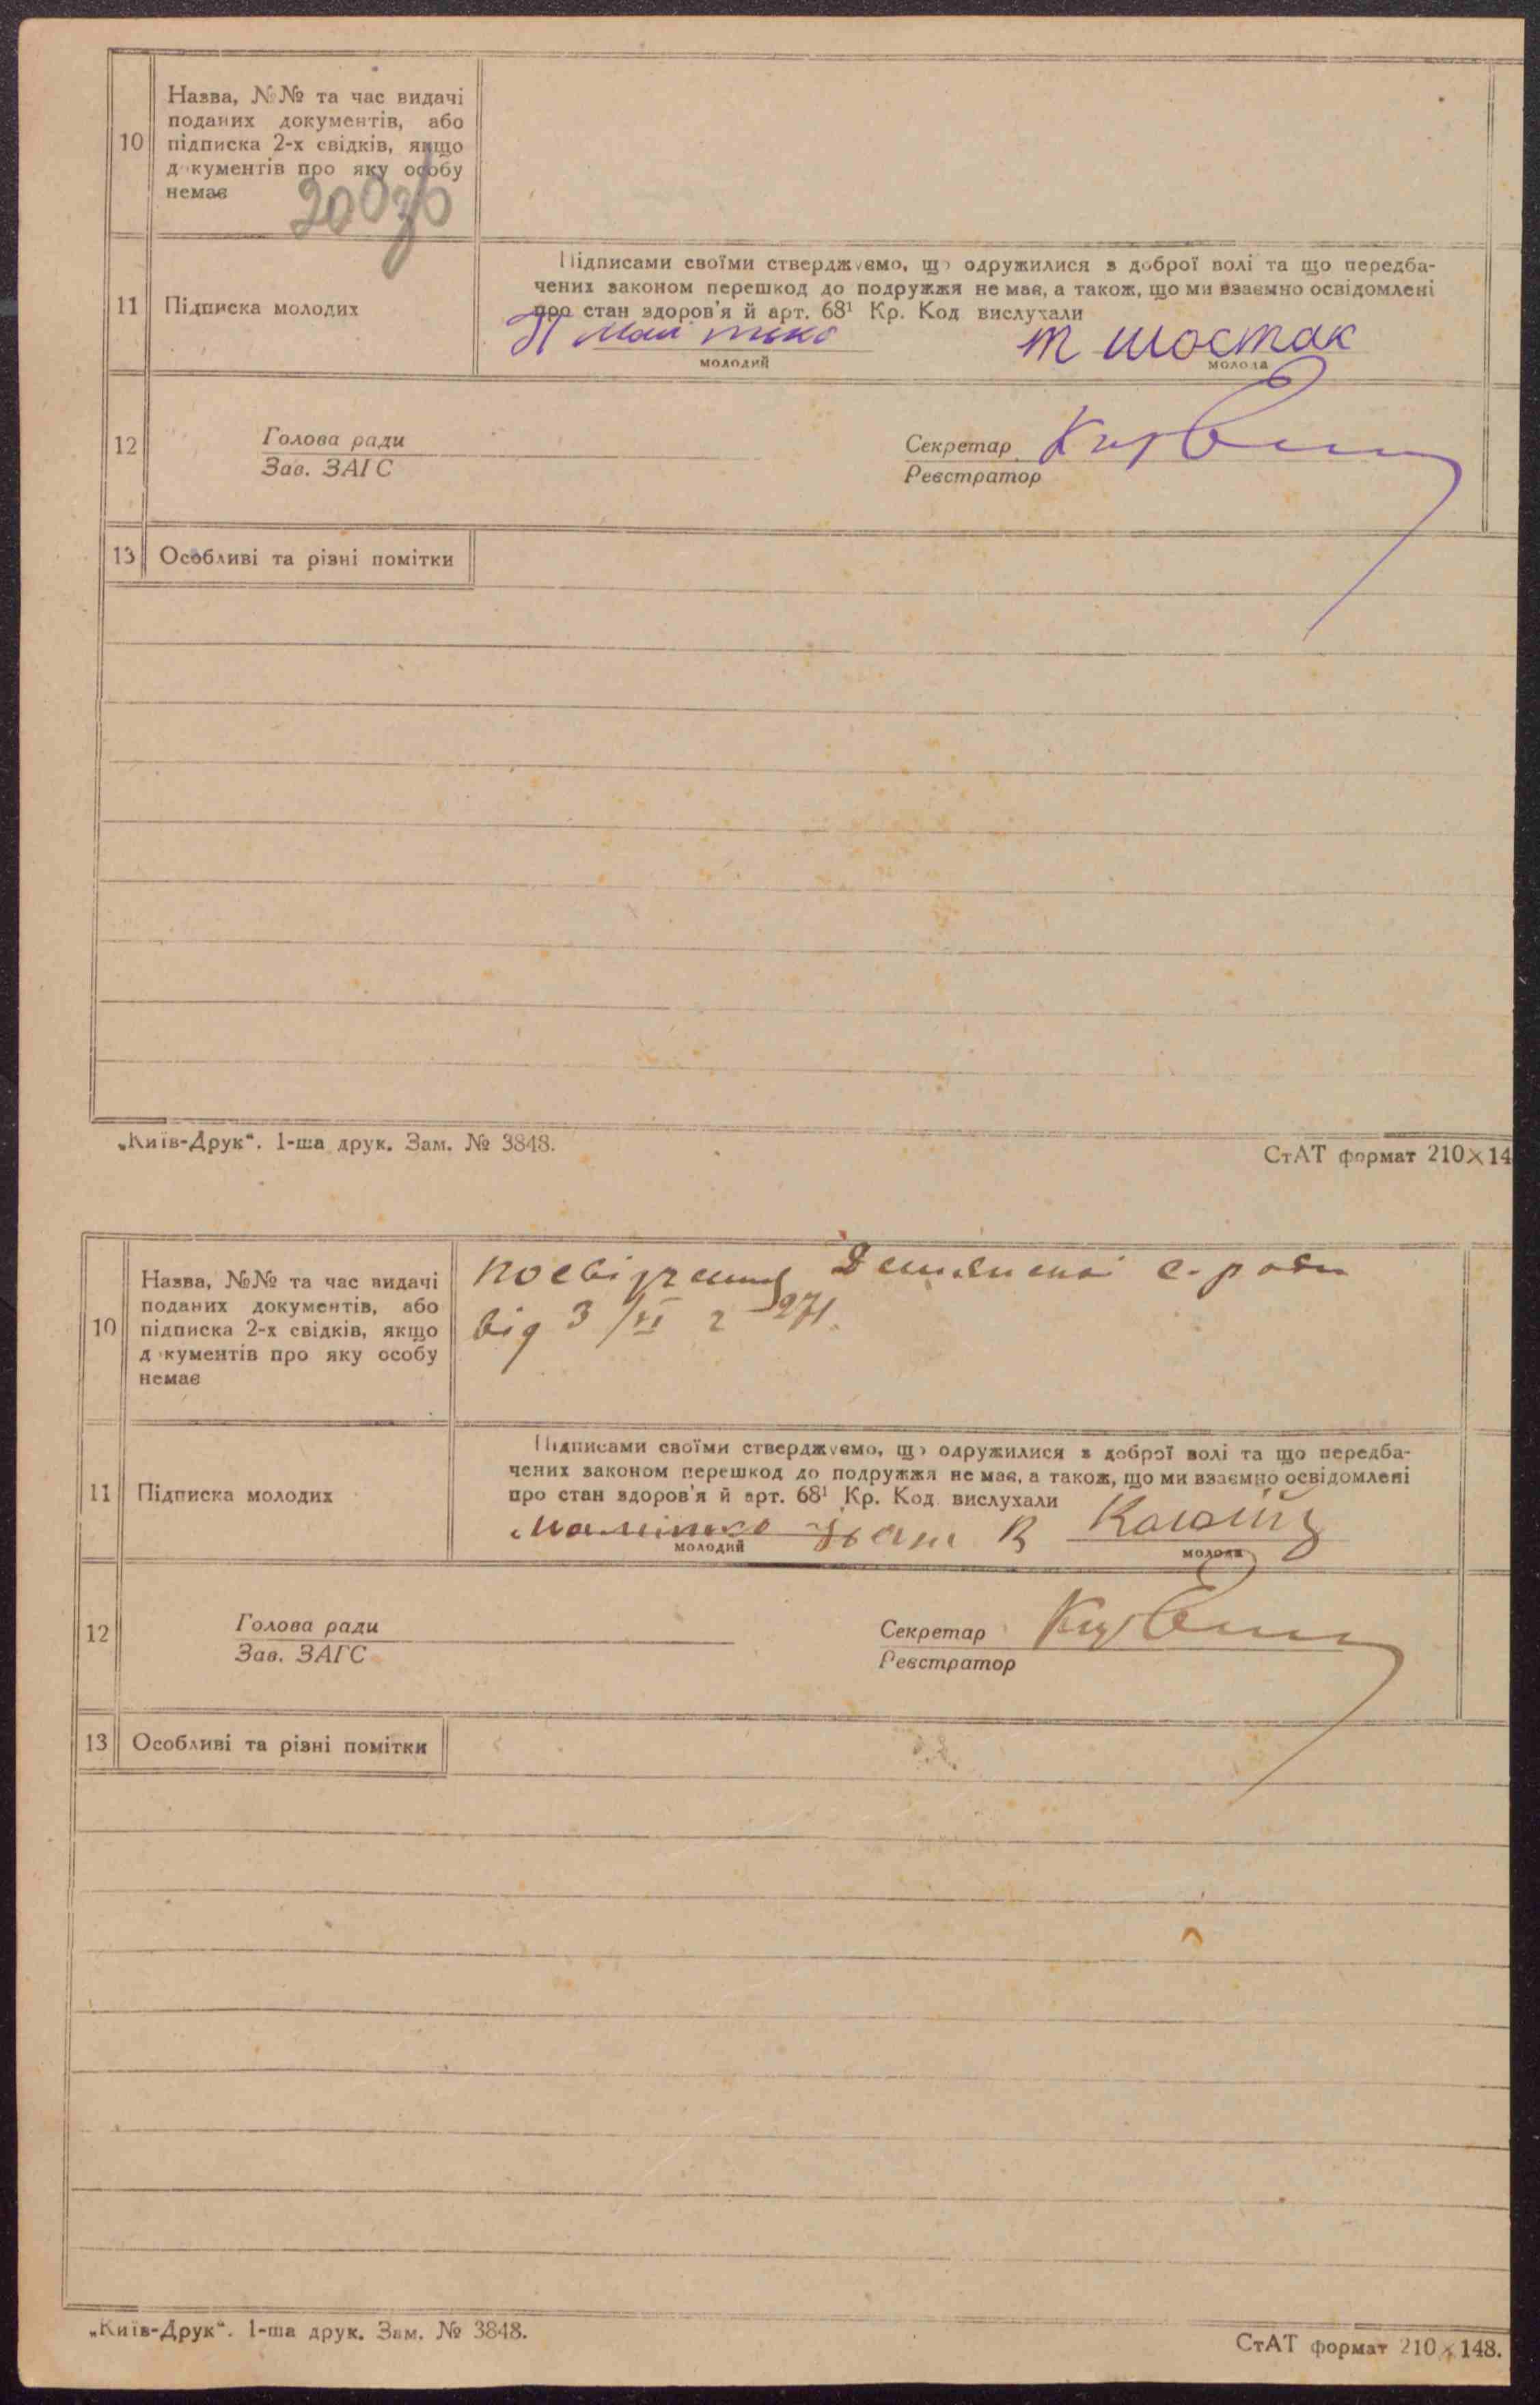 10
Назва, №№ та час видачі
поданих документів, або
підписка 2-х свідків, якщо
д кументів про яку особу
немає
11
Підписка молодих
Підписами своїми стверджуємо, що одружилися з доброї волі та що передба-
чених законом перешкод до подружжя не має, а також, що ми взаємно освідомлені
про стан здоров'я й арт. 68¹ Кр. Код вислухали
т шостак
молодий
молода
12
Голова ради
Зав. ЗАГС
Секретар
Реєстратор
13
Особливі та різні помітки
„Київ-Друк“. 1-ша друк. Зам. № 3848.
СтАТ формат 210×14
10
Назва, №№ та час видачі
поданих документів, або
підписка 2-х свідків, якщо
д кументів про яку особу
немає
с-ради
від 3/XI
11
Підписка молодих
Підписами своїми стверджуємо, що одружилися з доброї волі та що передба-
чених законом перешкод до подружжя не має, а також, що ми взаємно освідомлені
про стан здоров'я й арт. 68¹ Кр. Код вислухали
молодий
молода
12
Голова ради
Зав. ЗАГС
Секретар
Реєстратор
13
Особливі та різні помітки
„Київ-Друк“. 1-ша друк. Зам. № 3848.
СтАТ формат 210×148.